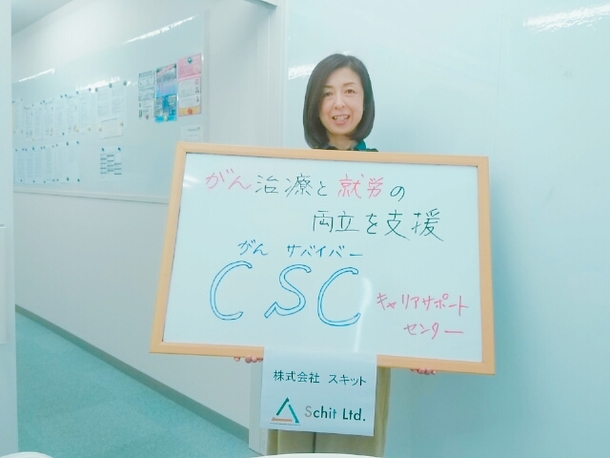 がん治療と就労の
両立を支援
がん サバイバー
CSC
キャリアサポート
センター
株式会社 スキット
Schit Ltd.